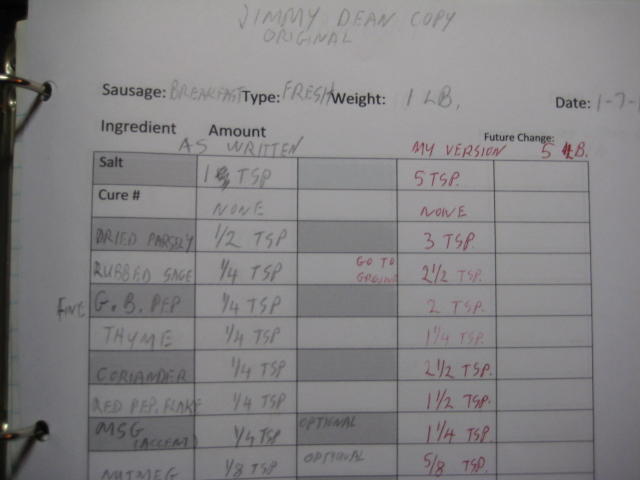 JIMMY DEAN COPY
ORIGINAL
Sausage: BREAKFAST Type: FRESH Weight: 1 LB. Date: 1-7-
Ingredient Amount Future Change:
AS WRITTEN MY VERSION 5 LB.
Salt 1 TSP 5 TSP.
Cure # NONE NONE
DRIED PARSELY 1/2 TSP 3 TSP.
RUBBED SAGE 1/4 TSP GO TO GROUND 2 1/2 TSP.
FINE G. B. PEP 1/4 TSP 2 TSP.
THYME 1/4 TSP 1 1/4 TSP.
CORIANDER 1/4 TSP 2 1/2 TSP.
RED PEP. FLAKE 1/4 TSP 1 1/2 TSP.
MSG (ACCENT) 1/4 TSP OPTIONAL 1 1/4 TSP.
NUTMEG 1/8 TSP OPTIONAL 5/8 TSP.